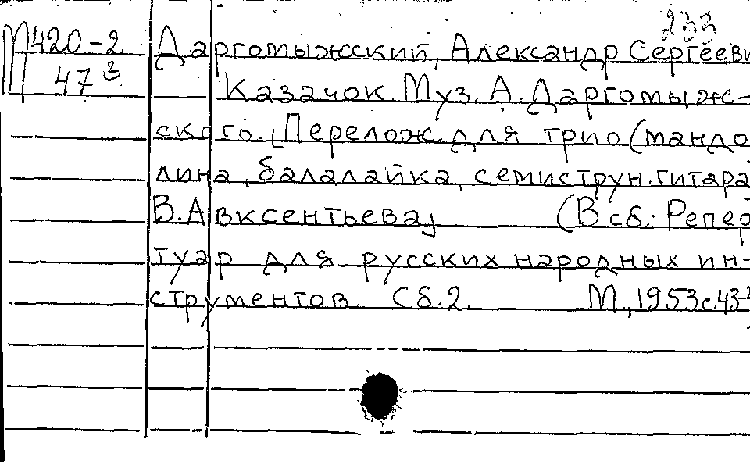 233
М420-2 Даргомыжский, Александр Сергееви
47³ Казачок. Муз. А. Даргомыж-
ского. [Перелож. для трио (мандо
лина, балалайка, семиструн. гитара
В. Авксентьева] (В сб.: Репер
туар для русских народных ин-
струментов. Сб. 2. М., 1953 с. 43